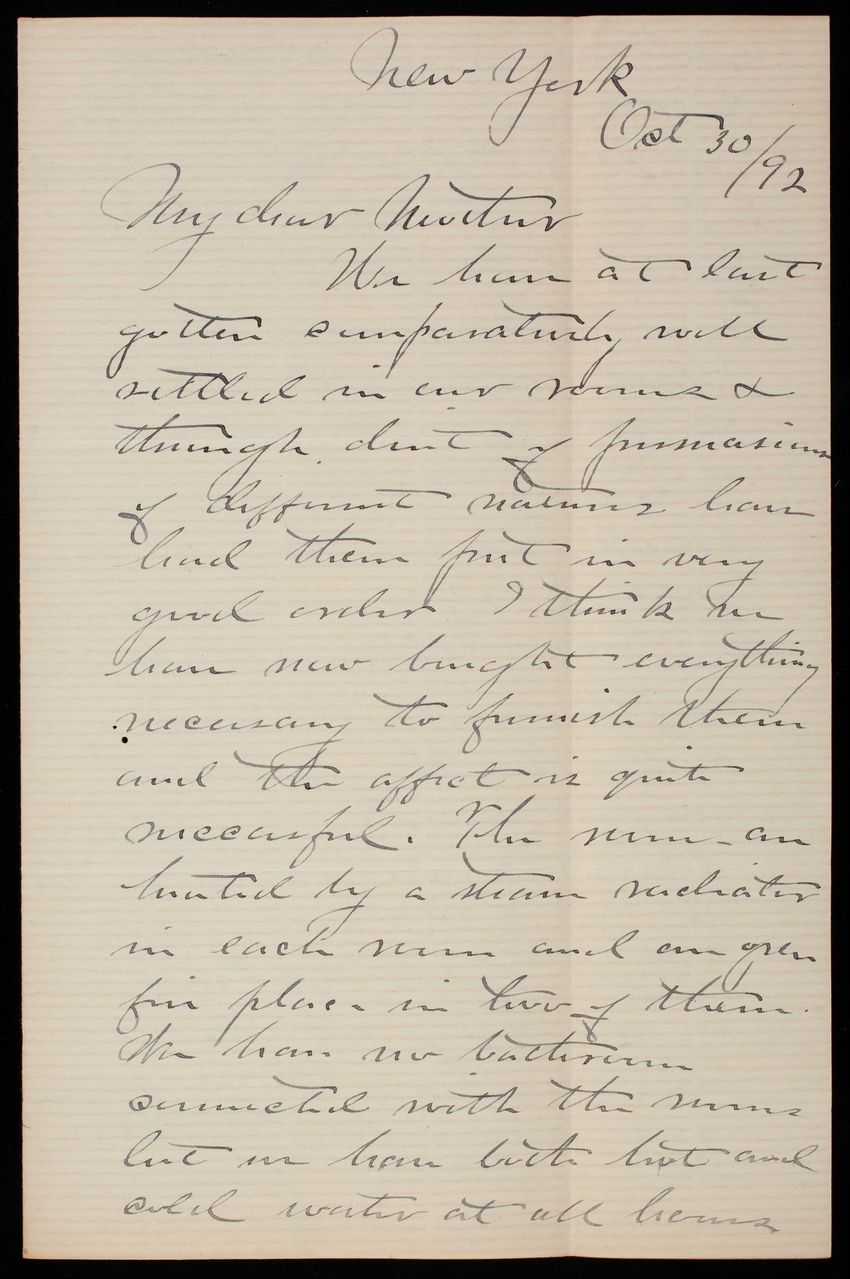 New York
Oct 30/92
My dear Mother
We have at last
gotten comparatively well
settled in our rooms &
through dint of persuasions
of different natures have
had them put in very
good order I think we
have now bought everything
necessary to furnish them
and the effect is quite
successful. The rooms are
heated by a steam radiator
in each room and an open
fire place in two of them.
We have no bathroom
connected with the rooms
but we have both hot and
cold water at all hours